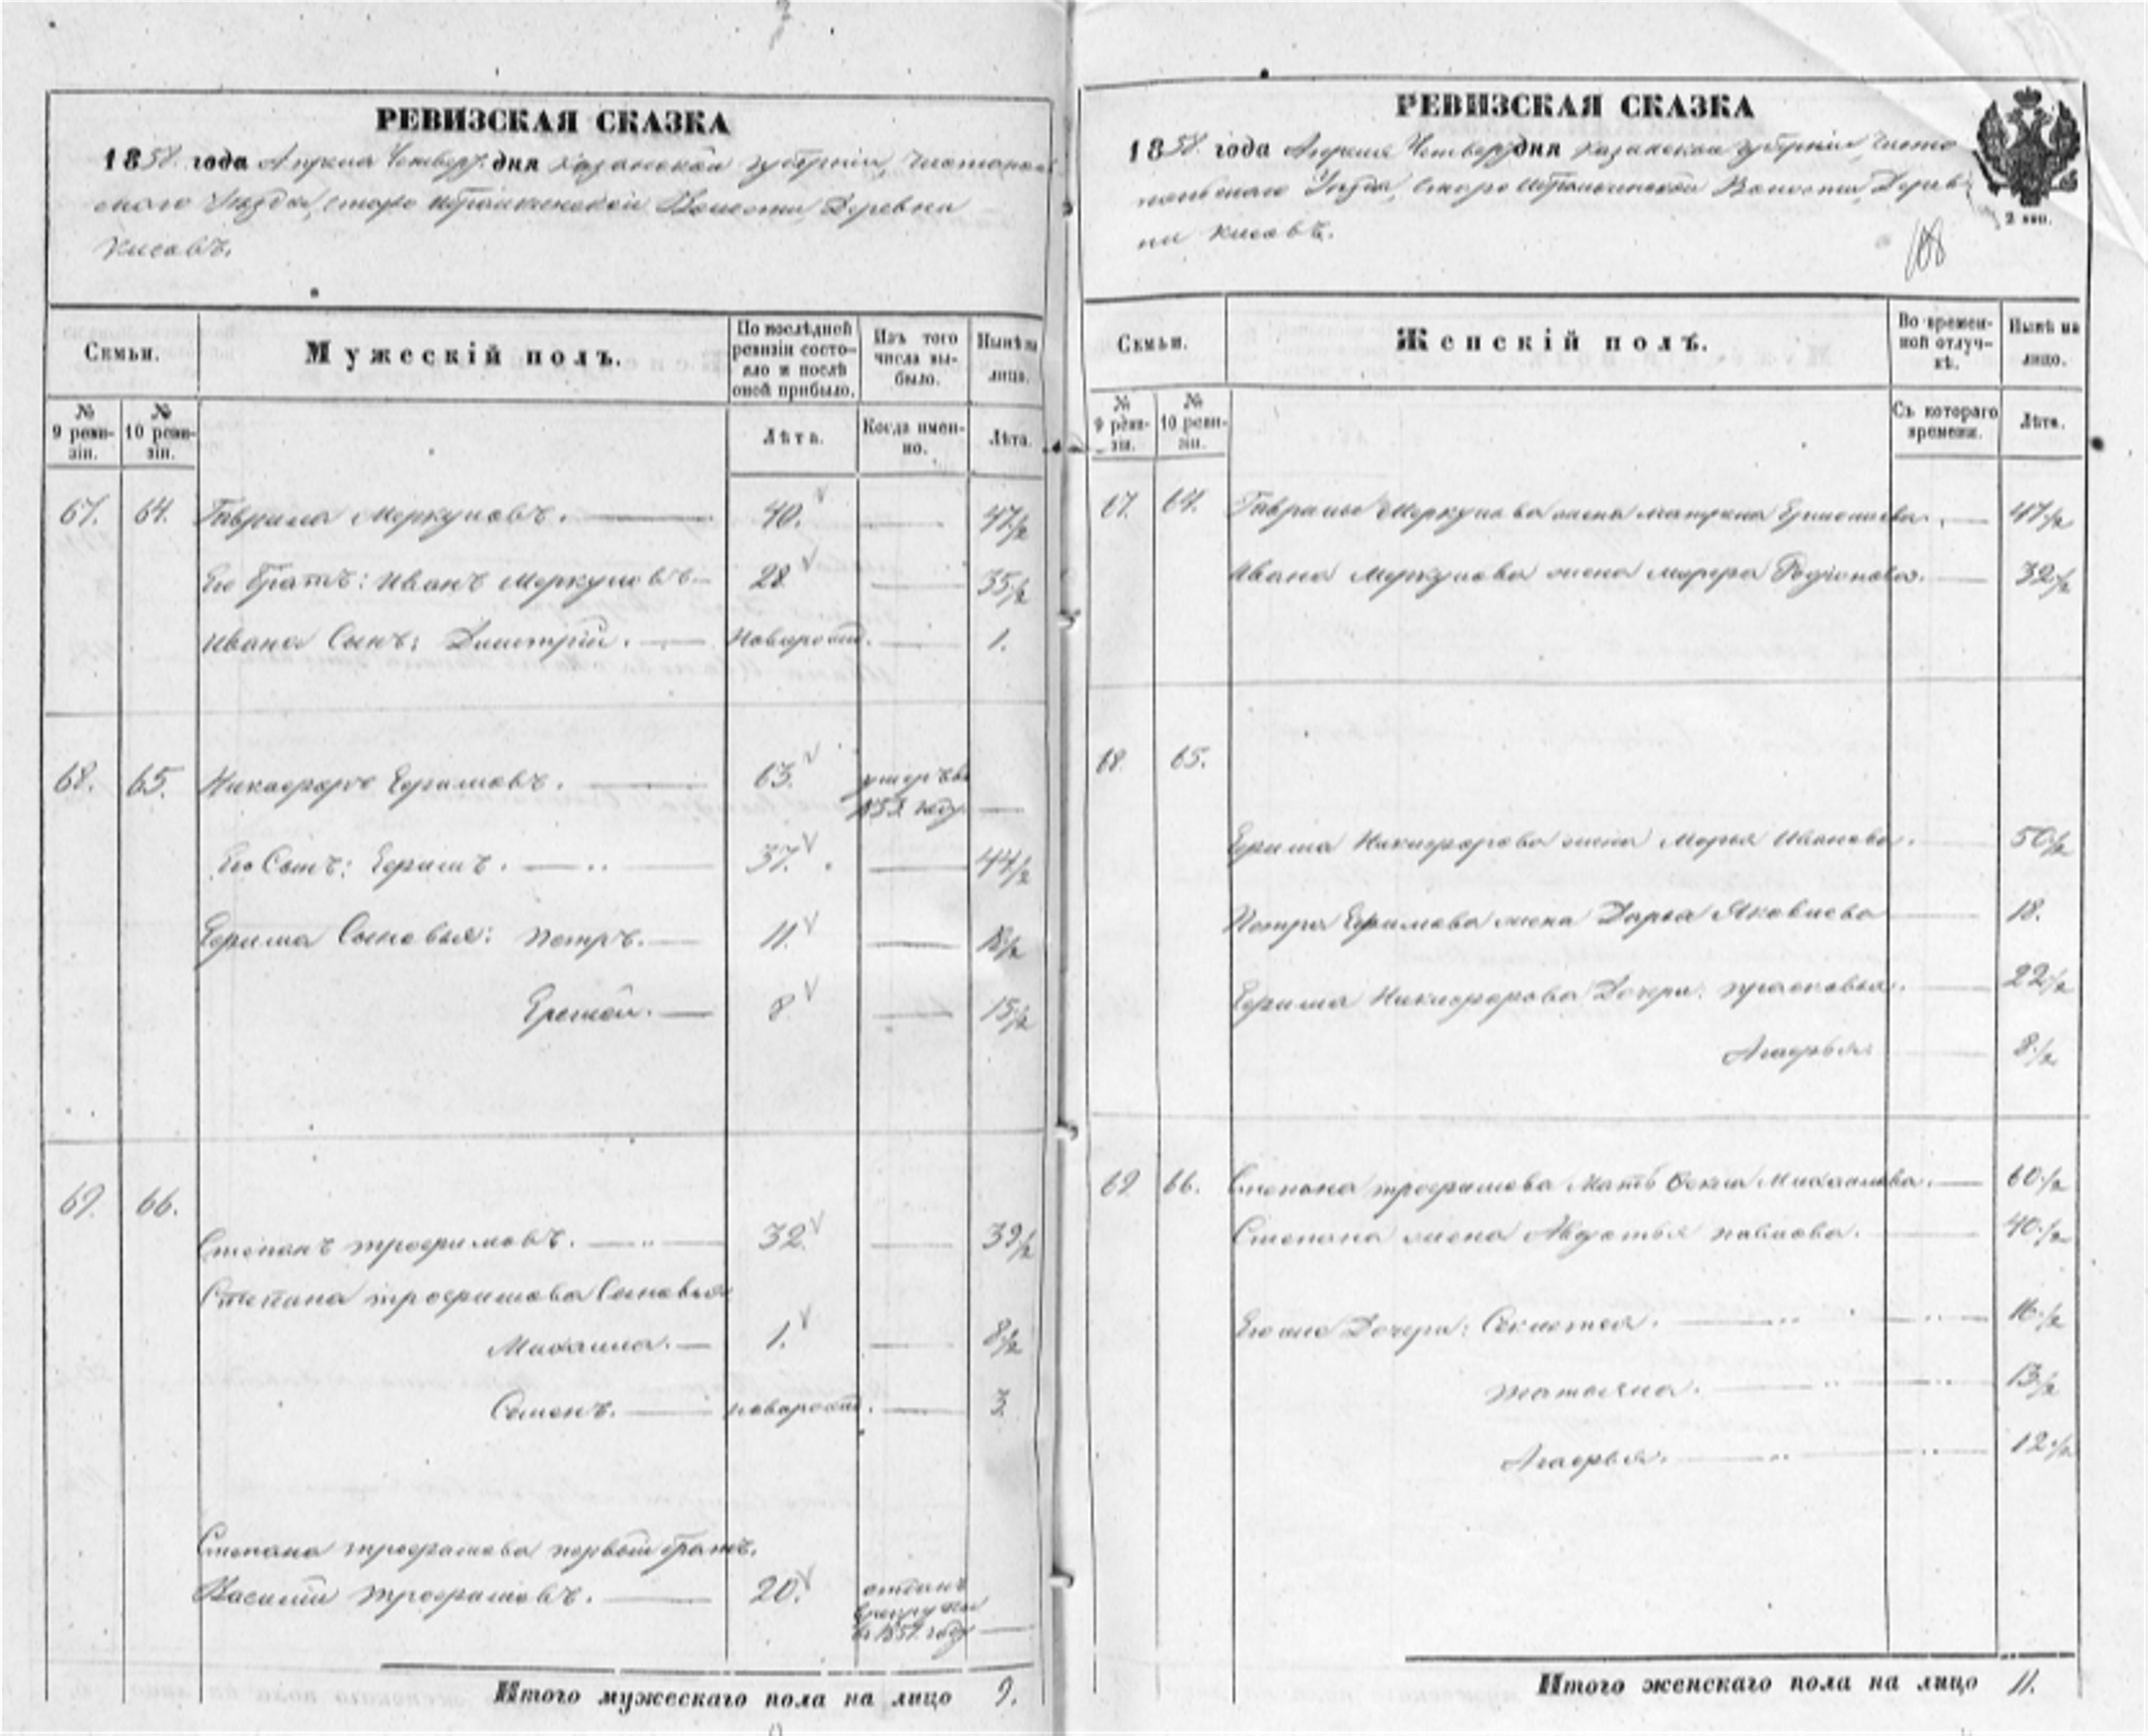 РЕВИЗСКАЯ СКАЗКА
1858 года Апреля Четверт. дня Казанской губернiи, Чистополь
скаго Уѣзда, Старо Ибрайкинской Волости Деревни
Кисовъ.
Семьи.
Мужескій полъ.
По послѣдней ревизіи состояло и послѣ оной прибыло.
Изъ того числа выбыло.
Нынѣ на лицо.
№ 9 ревизіи.
№ 10 ревизіи.
Лѣта.
Когда именно.
Лѣта.
67. 64. Гаврила Меркуловъ. 40. 47½
Его братъ: Иванъ Меркуловъ 28 35½
Ивана Сынъ: Дмитрій. новорожд. 1.
68. 65. Никифоръ Ефимовъ. 63. умеръ въ
185 году
Его Сынъ: Ефимъ. 37. 44½
Ефима Сыновья: Петръ. 11. 18½
Еремѣй. 8 15½
69. 66.
Степанъ Трофимовъ. 32 39½
Степана Трофимова Сыновья
Михаила. 1. 8½
Семенъ. новорожд. 3
Степана Трофимова первый братъ.
Василій Трофимовъ. 20. отданъ
в рекруты
въ 185 году
Итого мужескаго пола на лицо 9.
РЕВИЗСКАЯ СКАЗКА
1858 года Апреля Четверт дня Казанской губернiи, Чисто
польскаго Уѣзда, Старо Ибрайкинской Волости, Дерев
ни Кисовъ.
2 коп.
108
Семьи.
Женскій полъ.
Во временной отлучкѣ.
Нынѣ на лицо.
№ 9 ревизіи.
№ 10 ревизіи.
Съ котораго времени.
Лѣта.
67. 64. Гаврилы Меркулова жена Матрена Ермолаева. 47½
Ивана Меркулова жена Марфа Родионова. 32½
68. 65.
Ефима Никифорова жена Марья Иванова. 50½
Петра Ефимова жена Дарья Яковлева 18.
Ефима Никифорова Дочери: Прасковья. 22½
Агафья 8½
69 66. Степана Трофимова Мать Фекла Михайлова. 60½
Степана жена Авдотья Павлова. 40½
Его же Дочери: 16½
Татьяна. 13½
Агафья. 12½
Итого женскаго пола на лицо 11.